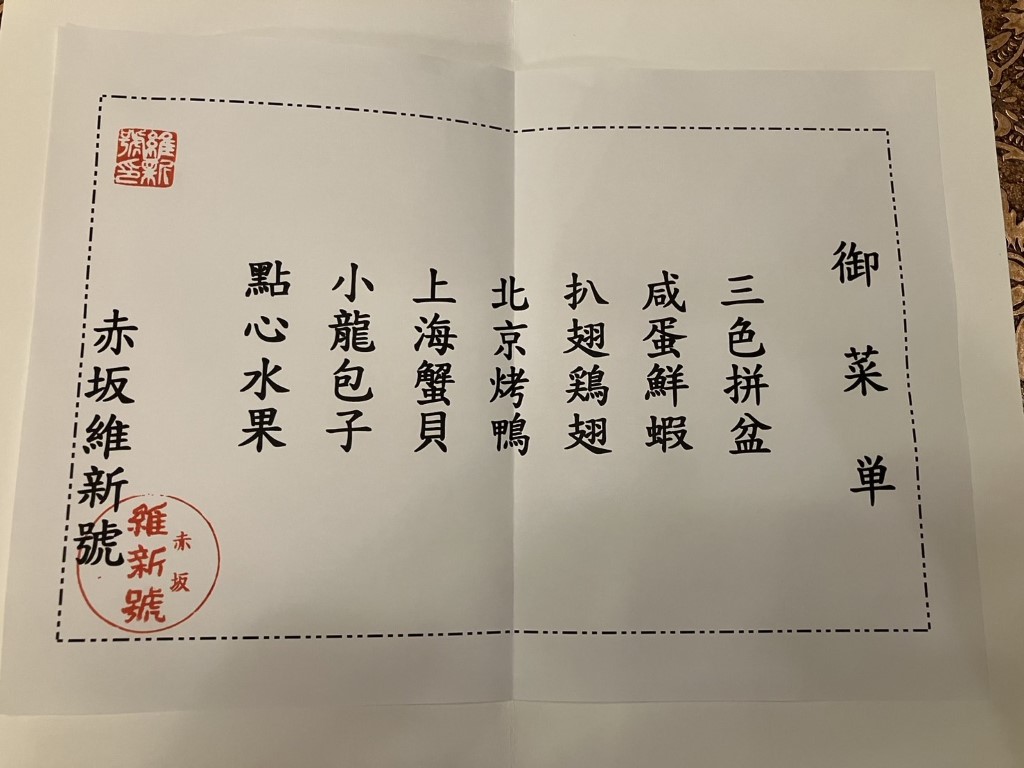 御菜単
三色拼盆
咸蛋鮮蝦
扒翅鶏翅
北京烤鴨
上海蟹貝
小龍包子
點心水果
赤坂維新號
維新號印
赤坂
維新號